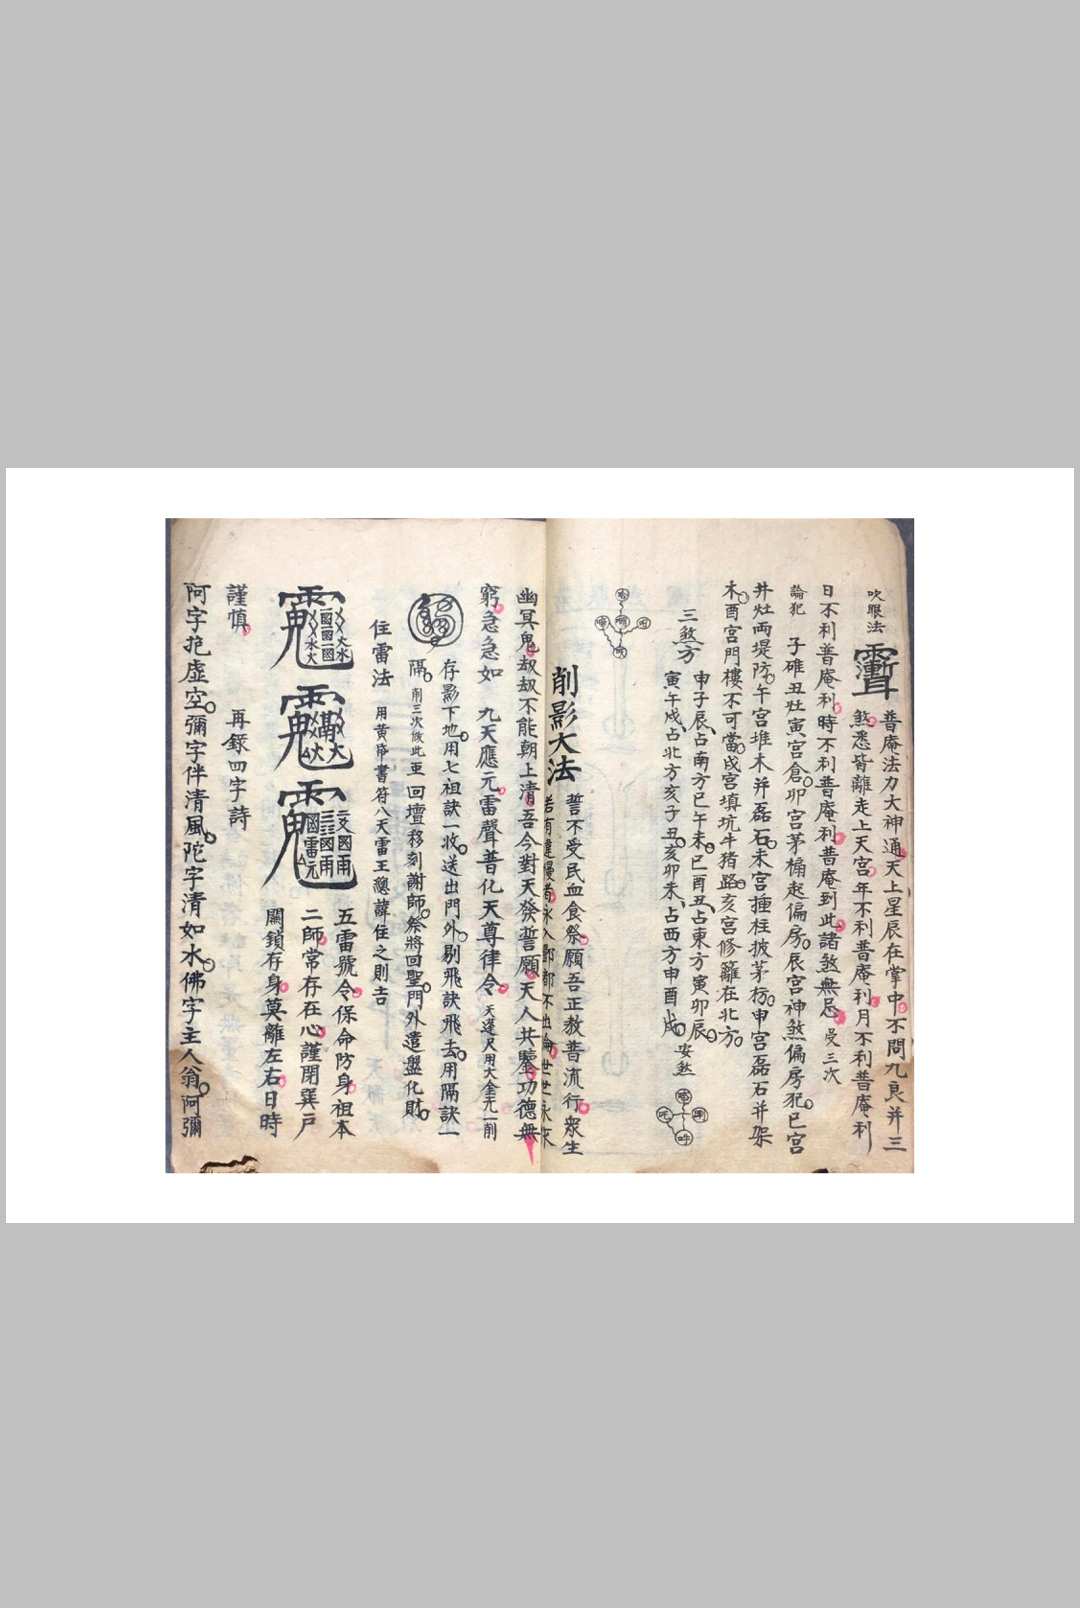 吹眼法
普庵法力大神通天上星辰在掌中不問九良并三
煞悉皆離走上天宮年不利普庵利月不利普庵利
日不利普庵利時不利普庵利普庵到此諸煞無忌 受三次
論犯 子碓丑灶寅宮倉卯宮茅 起偏房辰宮神煞偏房犯巳宮
井灶両堤防午宮堆木并磊石未宮 柱披茅 申宮磊石并架
木酉宮門樓不可當戌宮填坑牛猪路亥宮修籬在北方
三煞方
申子辰占南方巳午未巳酉丑占東方寅卯辰
寅午戌占北方亥子丑亥卯未占西方申酉戌 安煞
削影大法
誓不受民血食祭願吾正教普流行衆生
若有違慢者永入酆都不出 世世永
幽冥鬼劫劫不能朝上清吾今對天發誓願天人共鑒功德無
窮急急如 九天應元雷聲普化天尊律令 天蓬尺用大金光一削
存影下地用七祖訣一收送出門外剔飛訣飛去用隔訣一
隔 削三次 此 回壇移刻謝師祭將回聖門外遣盤化財
住雷法 用黄 書符八天雷王 諱住之則吉
五雷號令保命防身祖本
二師常存在心謹閉巽戸
關鎖存身莫離左右日時
謹慎 再錄四字詩
阿字 虛空彌字伴清風陀字清如水佛字主人翁阿彌